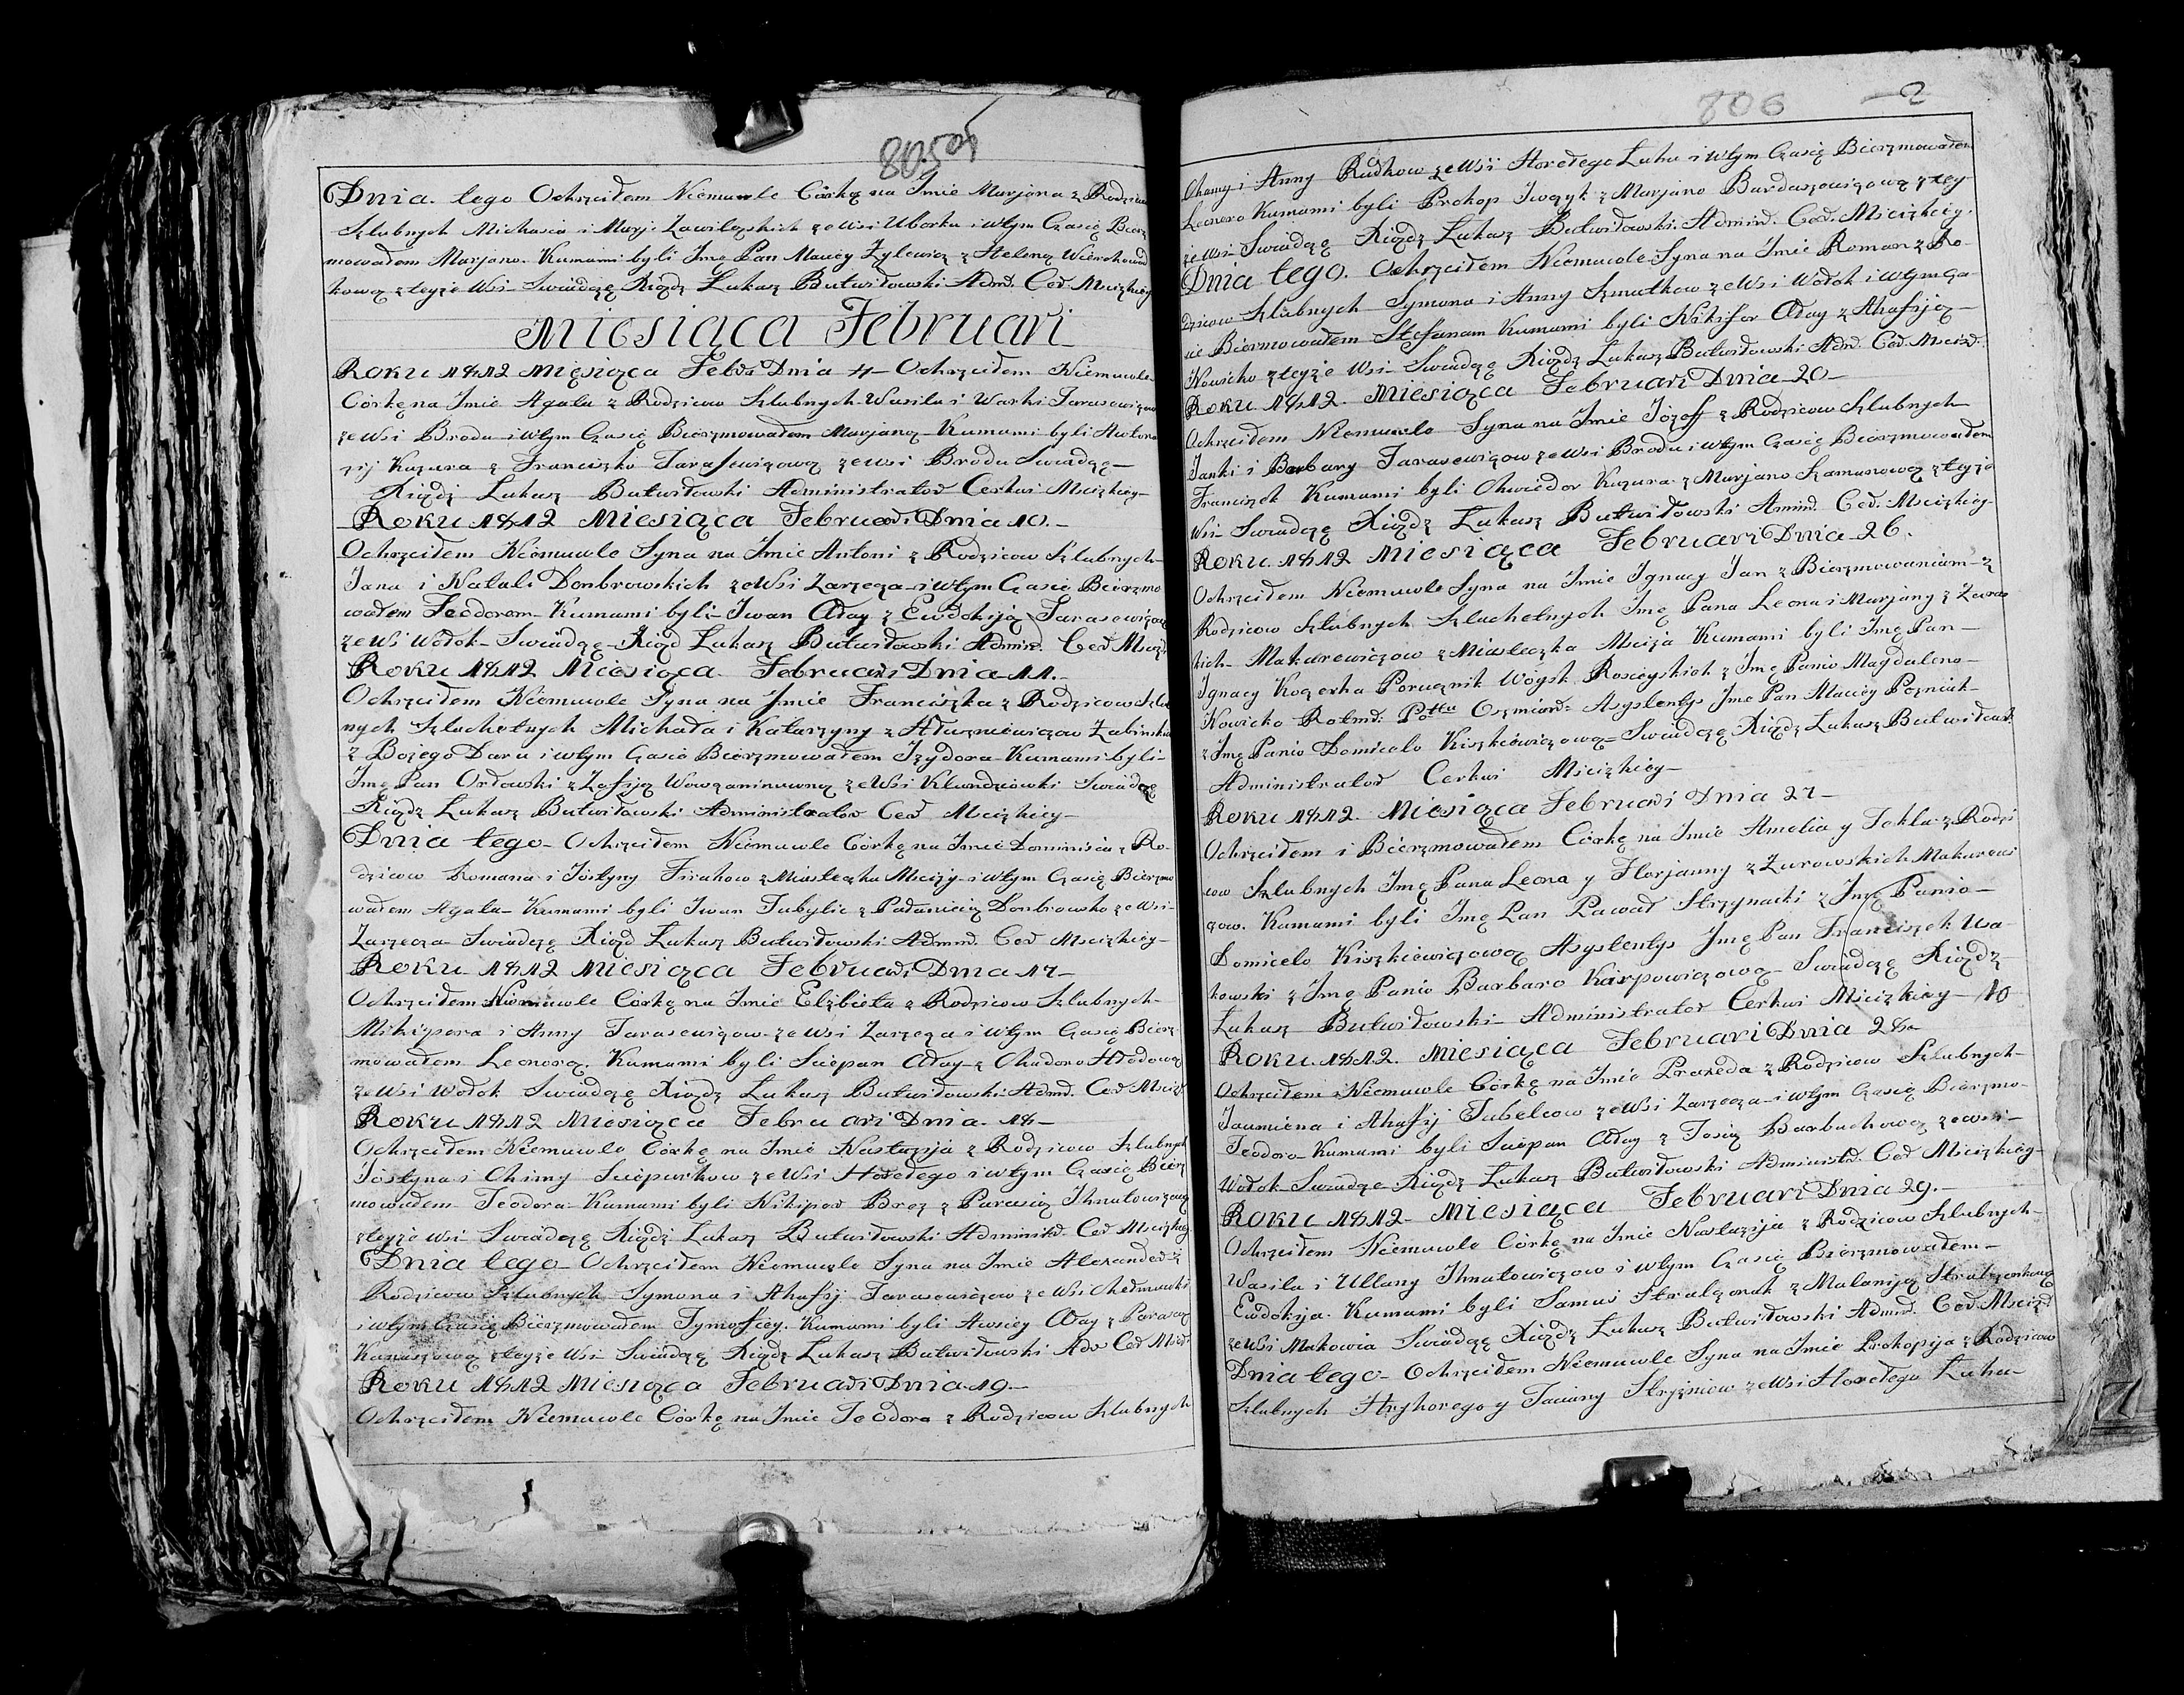 805
Dnia tego Ochrzciłem Niemowle Córkę na Imie Marjana z Rodzicow
Szlubnych Michasia i Maryi Zawilązkich ze Wsi Uborku i wtym Czasię Bierz
mowałem Marjano. Kumami byli Jmę Pan Maciey Zylewicz z Heleną
kową z teyże Wsi Swiadczę Xiądz Łukasz Butwiłowski Admd. Ced. Mscizkiey
Miesiąca Februari
Roku 1812 Miesiąca Febr Dnia 4 Ochrzciłem Niemowle
Córkę na Imie Agata z Rodzicow Szlubnych Wasila i Warki Tarasewiczow
ze Wsi Brodu i wtym Czasię Bierzmowałem Marjaną Kumami byli
Kuzura z Franciszko Tarasewiczową ze Wsi Brodu Swiadczę
Xiądz Łukasz Butwiłowski Administrator Cerkwi Mscizkiey
Roku 1812 Miesiąca Februari Dnia 10.
Ochrzciłem Niemowle Syna na Imie Antoni z Rodzicow Szlubnych
Jana i Natali Donbrowskich ze Wsi Zarzecza i wtym Czasię Bierzmo
wałem Feodorem Kumami byli Iwan Ałay z Ewdokiją Tarasewiczow
ze Wsi Wołok Swiadczę Xiądz Łukasz Butwiłowski Admin. Ced Mscizk
Roku 1812 Miesiąca Februari Dnia 11.
Ochrzciłem Niemowle Syna na Imie Franciszka z Rodzicow Szlu
nych Szlachetnych Michała i Katarzyny z Żabinskich
z Bożego Daru i wtym Czasię Bierzmowałem Izydora Kumami byli
Jmę Pan Orłowski z Zofiją ze Wsi Swiadczę
Xiądz Łukasz Butwiłowski Administrator Ced Mscizkiey
Dnia tego Ochrzciłem Niemowle Córkę na Imie Dominisia z Ro-
dzicow Romana i Jostyny z Miasteczka Mscizy i wtym Czasię Bierzmo
wałem Agata Kumami byli Iwan Tubylic z Donbrowsko ze Wsi
Zarzecza Swiadczę Xiądz Łukasz Butwiłowski Admind. Ced Mscizkiey
Roku 1812 Miesiąca Februari Dnia 17
Ochrzciłem Niemowle Córkę na Imie Elżbieta z Rodzicow Szlubnych
Mikipora i Anny Tarasewiczow ze Wsi Zarzecza i wtym Czasię Bierz
mowałem Leonorą. Kumami byli Sciepan Ałay z Chadoro
ze Wsi Wołok Swiadczę Xiądz Łukasz Butwiłowski Admd. Ced Mscizk
Roku 1812 Miesiąca Februari Dnia 18
Ochrzciłem Niemowle Córkę na Imie Nastazija z Rodzicow Szlubnych
Jostyna i Chimy Sciepurkow ze Wsi Horełego i wtym Czasię Bierz
mowałem Teodora Kumami byli Nikipor Broz z Parasią Ihnatowiczową
z teyże Wsi Swiadczę Xiądz Łukasz Butwiłowski Administ. Ced Mscizkiey
Dnia tego Ochrzciłem Niemowle Syna na Imie Alexander z
Rodzicow Szlubnych Symona i Ahafiy Tarasewiczow ze Wsi
i wtym Czasię Bierzmowałem Tymofiey. Kumami byli Awsiey Ałay z Parasą
z teyże Wsi Swiadczę Xiądz Łukasz Butwiłowski Ad Ced Mscizk
Roku 1812 Miesiąca Februari Dnia 19
Ochrzciłem Niemowle Córkę na Imie Teodora z Rodzicow Szlubnych
806 2
Chamy i Anny Rudkow ze Wsi Horełego Łuhu i wtym Czasię Bierzmowałem
Leonoro Kumami byli Prokop Iwczyk z Marjano z tey
że Wsi Swiadczę Xiądz Łukasz Butwiłowski Admind. Ced. Mscizkiey
Dnia tego. Ochrzciłem Niemowle Syna na Imie Roman z Ro-
dzicow Szlubnych Symona i Anny Szmatkow ze Wsi Wołok i wtym Cza-
sie Bierzmowałem Stefanam Kumami byli Nikifor Ałay z Ahafiją
z teyże Wsi Swiadczę Xiądz Łukasz Butwiłowski Admd. Ced Mscizk.
Roku 1812 Miesiąca Februari Dnia 20
Ochrzciłem Niemowle Syna na Imie Jozoff z Rodzicow Szlubnych
Janki i Barbary Tarasewiczow ze Wsi Brodu i wtym Czasię Bierzmowałem
Franciszek Kumami byli Chwiedor Kuzura z Marjano z teyże
Wsi Swiadczę Xiądz Łukasz Butwiłowski Amind. Ced. Mscizkiey
Roku 1812 Miesiąca Februari Dnia 26.
Ochrzciłem Niemowle Syna na Imie Ignacy Jan z Bierzmowaniam z
Rodzicow Szlubnych Szlachetnych Jmę Pana Leona i Marjany z Żurow
kich Makarewiczow z Miasteczka Mscizia Kumami byli Jmę Pan
Ignacy Porucznik Woysk Rosieyskich z Jmę Panio Magdaleno
Nowicko Rotmd. Pottu Oszmiań. Asystentys Jmę Pan Maciey Pozniak
z Jmę Panio Domicelo Kiszkiewiczową Swiadczę Xiądz Łukasz Butwiłowsk
Administrator Cerkwi Mscizkiey
Roku 1812 Miesiąca Februari Dnia 27
Ochrzciłem i Bierzmowałem Córkę na Imie Amelia y Tekla z Rodzi
cow Szlubnych Jmę Pana Leona y Florjanny z Żurowskich Makarewi
czow. Kumami byli Jmę Pan Paweł Strzynacki z Jmę Panio
Domicelo Kiszkiewiczową Asystentys Jmę Pan Franciszek
kowski z Jmę Panio Barbaro Karpowiczową Swiadczę Xiądz
Łukasz Butwiłowski Administrator Cerkwi Mscizkiey 10
Roku 1812. Miesiąca Februari Dnia 28
Ochrzciłem Niemowle Córkę na Imie Praxeda z Rodzicow Szlubnych
i Ahafiy Tubelcow ze Wsi Zarzecza i wtym Czasię Bierzmo-
Teodoro Kumami byli Sciepan Ałay z Tosią Barbuchową ze Wsi
Wołok Swiadczę Xiądz Łukasz Butwiłowski Administ. Ced Mscizkiey
Roku 1812 Miesiąca Februari Dnia 29.
Ochrzciłem Niemowle Córkę na Imie Nastazija z Rodzicow Szlubnych
Wasila i Ullany Ihnatowiczow i wtym Czasię Bierzmowałem
Ewdokija. Kumami byli Samuś z Malaniją
ze Wsi Makowia Swiadczę Xiądz Łukasz Butwiłowski Admd. Ced Mscizk
Dnia tego Ochrzciłem Niemowle Syna na Imie Prokopija z Rodzicow
Szlubnych Hryhorego y Taciany ze Wsi Horełego Łuhu